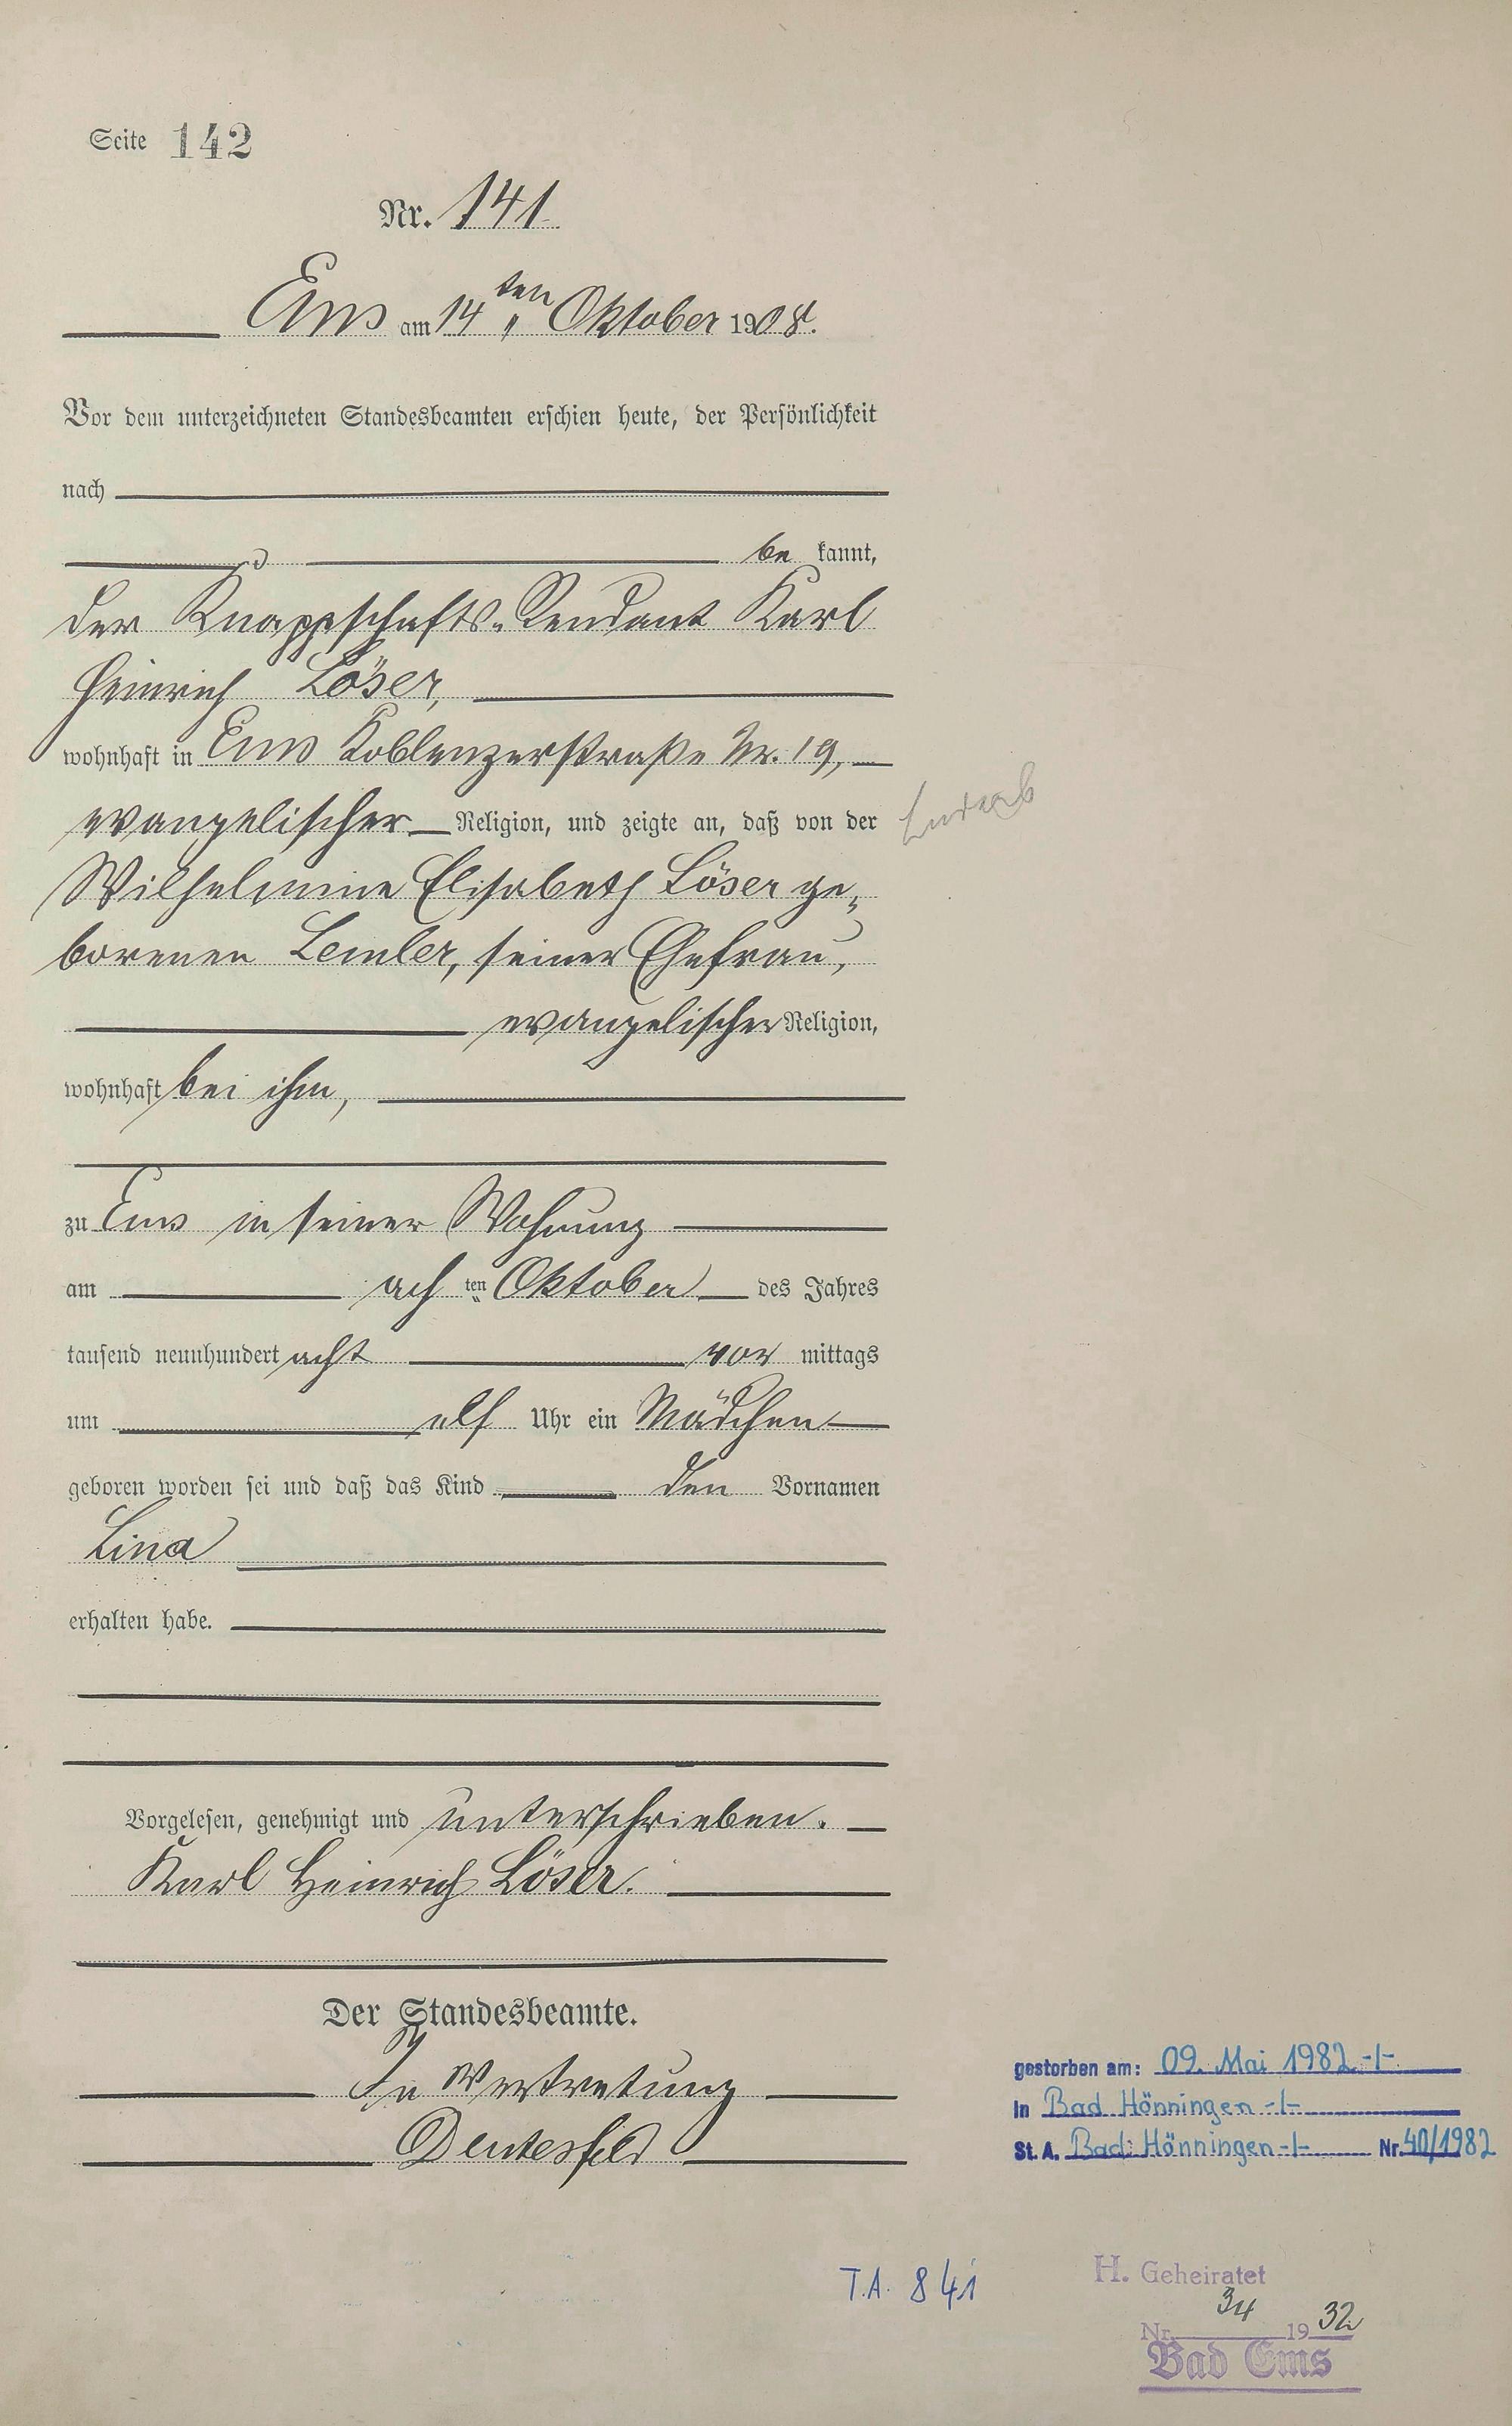 Seite 142
Nr. 141
Ems am 14ten Oktober 1908.
Vor dem unterzeichneten Standesbeamten erschien heute, der Persönlichkeit
nach
be kannt,
der Knappschafts-Rendant Karl
Heinrich Löser,
wohnhaft in Ems Koblenzerstraße Nr. 19,
evangelischer Religion, und zeigte an, daß von der
Wilhelmine Elisabeth Löser ge-
borenen Lemler, seiner Ehefrau,
evangelischer Religion,
wohnhaft bei ihm,
zu Ems in seiner Wohnung
am ach ten Oktober des Jahres
tausend neunhundert acht vor mittags
um elf Uhr ein Mädchen
geboren worden sei und daß das Kind den Vornamen
Lina
erhalten habe.
Vorgelesen, genehmigt und unterschrieben.
Karl Heinrich Löser.
Der Standesbeamte.
In Vertretung
gestorben am: 09. Mai 1982 -/-
in Bad Hönningen -/-
St. A. Bad Hönningen -/- Nr. 40/1982
T.A. 841
H. Geheiratet
Nr. 34 1932
Bad Ems